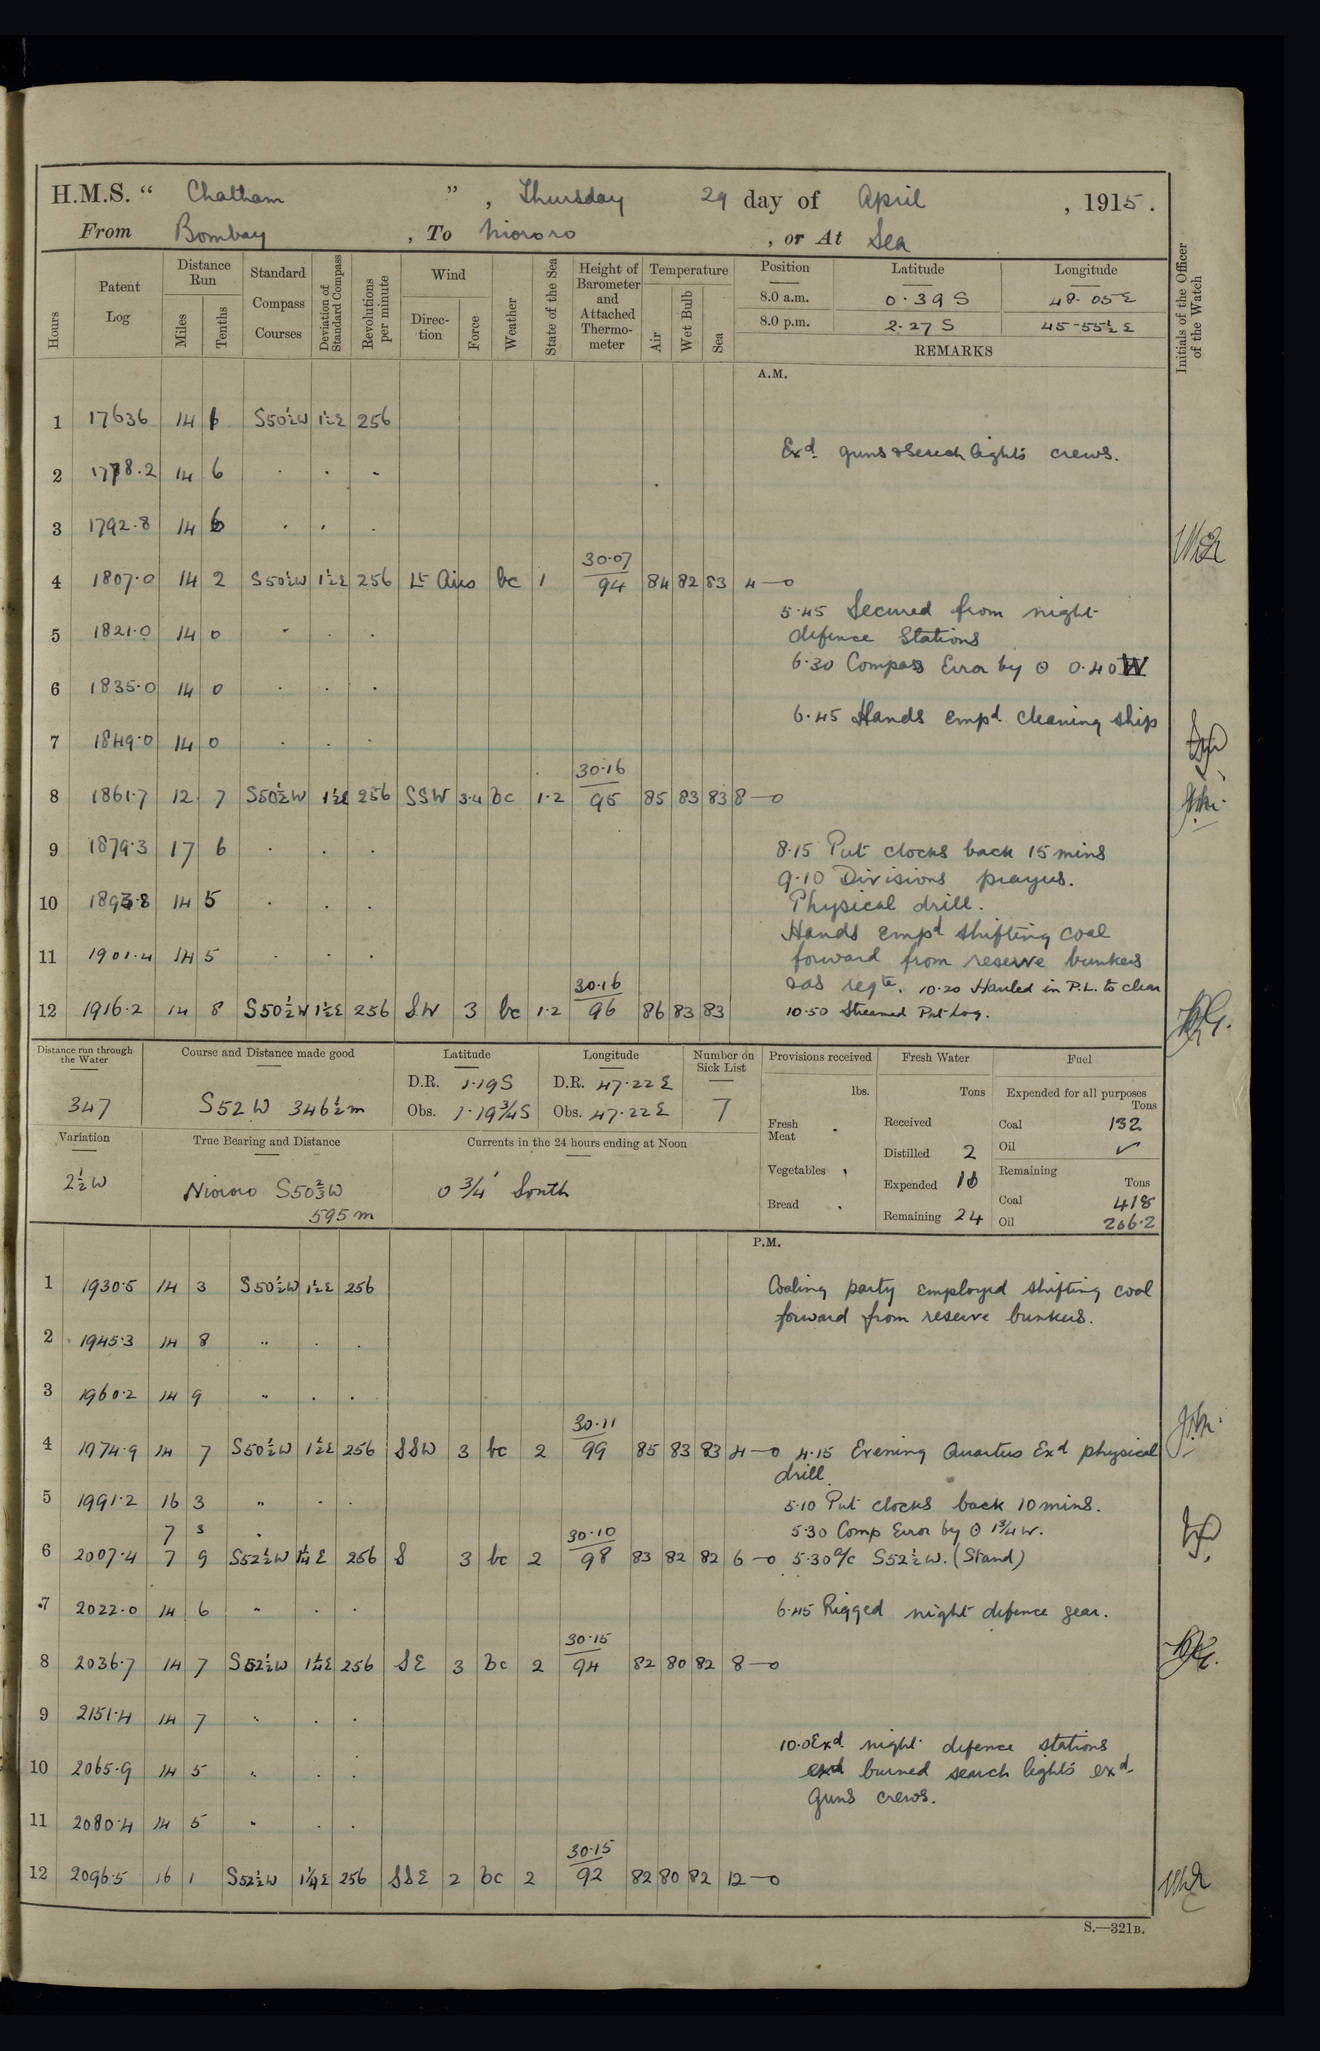 H.M.S. “ Chatham ” , Thursday 29 day of April , 1915 .
From Bombay , To Niororo , or At Sea
Hours
Patent Log
Distance Run
Miles
Tenths
Standard Compass Courses
Deviation of Standard Compass
Revolutions per minute
Wind
Direction
Force
Weather
State of the Sea
Height of Barometer and Attached Thermometer
Temperature
Air
Wet Bulb
Sea
Position Latitude Longitude
8.0 a.m. 0.39 S 48.05 E
8.0 p.m. 2.27 S 45-55½ E
REMARKS
Initials of the Officer of the Watch
A.M.
1 17636 14 S50½W 1½E 256
Exd. guns & Search lights crews.
2 1778.2 14 6 . . .
3 1792.8 14 6 . . .
30.07
4 1807.0 14 2 S50½W 1½E 256 Lt Airs bc 1 94 84 82 83 4—0
5.45 Secured from night
defence Stations
5 1821.0 14 0 . . .
6.30 Compass Error by ⊙ 0.40 W
6 1835.0 14 0 . . .
6.45 Hands empd. cleaning ship
7 1849.0 14 0 . . .
30.16
8 1861.7 12 7 S50½W 1½E 256 SSW 3.4 bc 1.2 95 85 83 83 8—0
9 1879.3 17 6 . . . 8.15 Put clocks back 15 mins
9.10 Divisions prayers.
10 1893.8 14 5 . . . Physical drill.
Hands empd shifting coal
11 1901.4 14 5 . . . forward from reserve bunkers
30.16
&as reqte. 10.20 Hauled in P.L. to clear
12 1916.2 14 8 S50½W 1½E 256 SW 3 bc 1.2 96 86 83 83 10.50 Streamed Pat Log.
Distance run through the Water
347
Course and Distance made good
S52W 346½m
Latitude
D.R. 1.19S
Obs. 1.19¾S
Longitude
D.R. 47.22E
Obs. 47.22E
Number on Sick List
7
Provisions received
lbs.
Fresh Meat .
Vegetables ,
Bread .
Fresh Water
Tons
Received
Distilled 2
Expended
Remaining 24
Fuel
Expended for all purposes
Tons
Coal 132
Oil ✓
Remaining
Tons
Coal 418
Oil 206.2
Variation
2½W
True Bearing and Distance
Niororo S50⅔W
595 m
Currents in the 24 hours ending at Noon
0 ¾' South
P.M.
1 1930.5 14 3 S50½W 1½E 256 Coaling party employed shifting coal
forward from reserve bunkers.
2 1945.3 14 8 .. . .
3 1960.2 14 9 .. . .
30.11
4 1974.9 14 7 S50½W 1½E 256 SSW 3 bc 2 99 85 83 83 4—0 4.15 Evening Quarters Exd physical
drill.
5 1991.2 16 3 .. . . 5.10 Put clocks back 10 mins.
7 3 . 30.10 5.30 Comp Error by ⊙ 1¾W.
6 2007.4 7 9 S52½W 1¼E 256 S 3 bc 2 98 83 82 82 6—0 5.30 a/c S52½W. (Stand)
7 2022.0 14 6 .. . . 6.45 Rigged night defence gear.
30.15
8 2036.7 14 7 S52½W 1¼E 256 SE 3 bc 2 94 82 80 82 8—0
9 2151.4 14 7 .. . .
10.0 Exd. night defence stations
10 2065.9 14 5 .. . . exd burned search lights exd.
guns crews.
11 2080.4 14 5 .. . .
30.15
12 2096.5 16 1 S52½W 1¼E 256 SSE 2 bc 2 92 82 80 82 12—0
S.—321B.